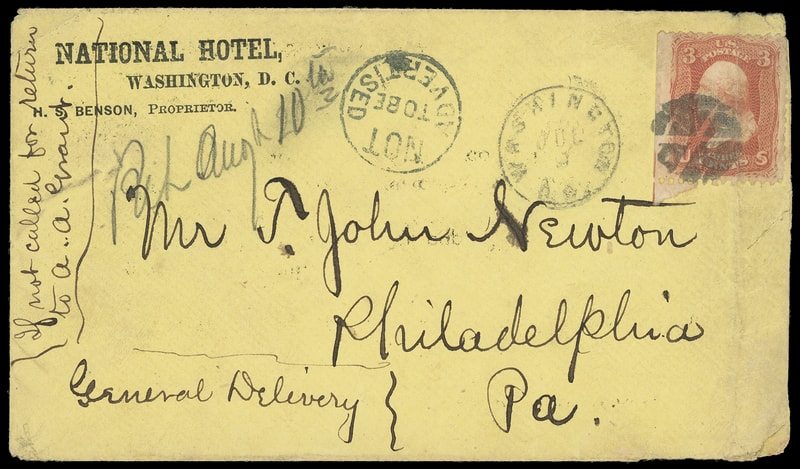 NATIONAL HOTEL,
WASHINGTON, D. C.
H. S. BENSON, PROPRIETOR.
If not called for return
to A. A. Grant.
Augt 10th
NOT
TO BE
ADVERTISED
WASHINGTON
3 U.S. 3
POSTAGE
Mr T. John Newton
Philadelphia
Pa.
General Delivery